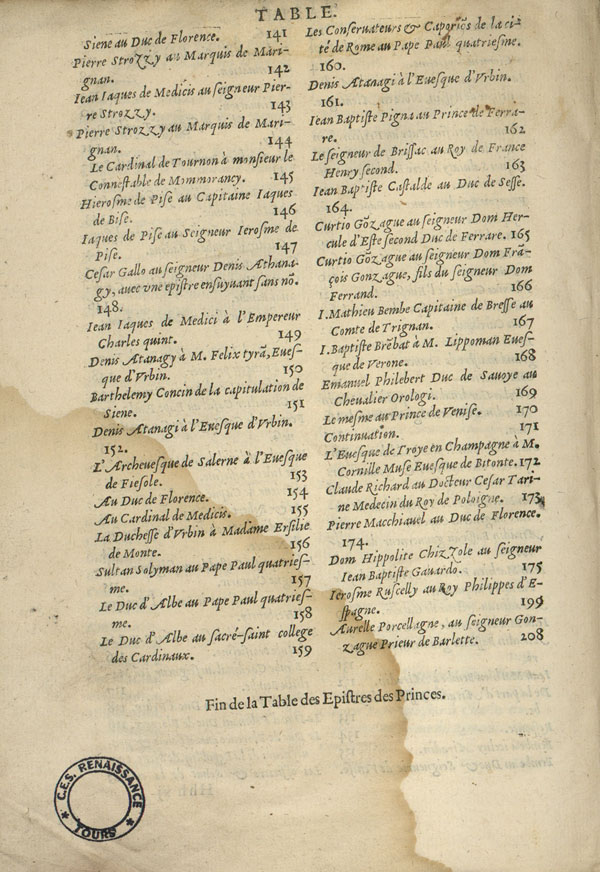 TABLE.
Siene au Duc de Florence. 141
Pierre Strozzy au Marquis de Mari-
gnan. 142
Iean Iaques de Medicis au seigneur Pier-
re Strozzy. 143
Pierre Strozzy au Marquis de Mari-
gnan. 144
Le Cardinal de Tournon à monsieur le
Connestable de Mommorancy. 145
Hierosme de Pise au Capitaine Iaques
de Bise. 146
Iaques de Pise au Seigneur Ierosme de
Pise. 147
Cesar Gallo au seigneur Denis Athana-
gy, auec vne epistre ensuyuant sans nõ.
148.
Iean Iaques de Medici à l'Empereur
Charles quint. 149
Denis Atanagy à M. Felix tyrã, Eues-
que d'Vrbin. 150
Barthelemy Concin de la capitulation de
Siene. 151
Denis Atanagi à l'Euesque d'Vrbin.
152.
L'Archeuesque de Salerne à l'Euesque
de Fiesole. 153
Au Duc de Florence. 154
Au Cardinal de Medicis. 155
La Duchesse d'Vrbin à Madame Ersilie
de Monte. 156
Sultan Solyman au Pape Paul quatries-
me. 157
Le Duc d'Albe au Pape Paul quatries-
me. 158
Le Duc d'Albe au sacré-saint college
des Cardinaux. 159
Les Conseruateurs & Caporiõs de la ci-
té de Rome au Pape Paul quatriesme.
160.
Denis Atanagi à l'Euesque d'Vrbin.
161.
Iean Baptiste Pigna au Prince de Ferra-
re. 162
Le seigneur de Brissac au Roy de France
Henry second. 163
Iean Baptiste Castalde au Duc de Sesse.
164.
Curtio Gõzague au seigneur Dom Her-
cule d'Este second Duc de Ferrare. 165
Curtio Gõzague au seigneur Dom Frã-
çois Gonzague, fils du seigneur Dom
Ferrand. 166
I. Mathieu Bembe Capitaine de Bresse au
Comte de Trignan. 167
I. Baptiste Brẽbat à M. Lippoman Eues-
que de Verone. 168
Emanuel Philebert Duc de Sauoye au
Cheualier Orologi. 169
Le mesme au Prince de Venise. 170
Continuation. 171
L'Euesque de Troye en Champagne à M.
Cornille Muse Euesque de Bitonte. 172
Claude Richard au Docteur Cesar Tari-
ne Medecin du Roy de Poloigne. 173
Pierre Macchiauel au Duc de Florence.
174.
Dom Hippolite Chizzole au seigneur
Iean Baptiste Gauardo. 175
Ierosme Ruscelly au Roy Philippes d'E-
spagne. 199
Aurelle Porcellagne, au seigneur Gon-
zague Prieur de Barlette. 208
Fin de la Table des Epistres des Princes.
C.E.S. RENAISSANCE
* TOURS *